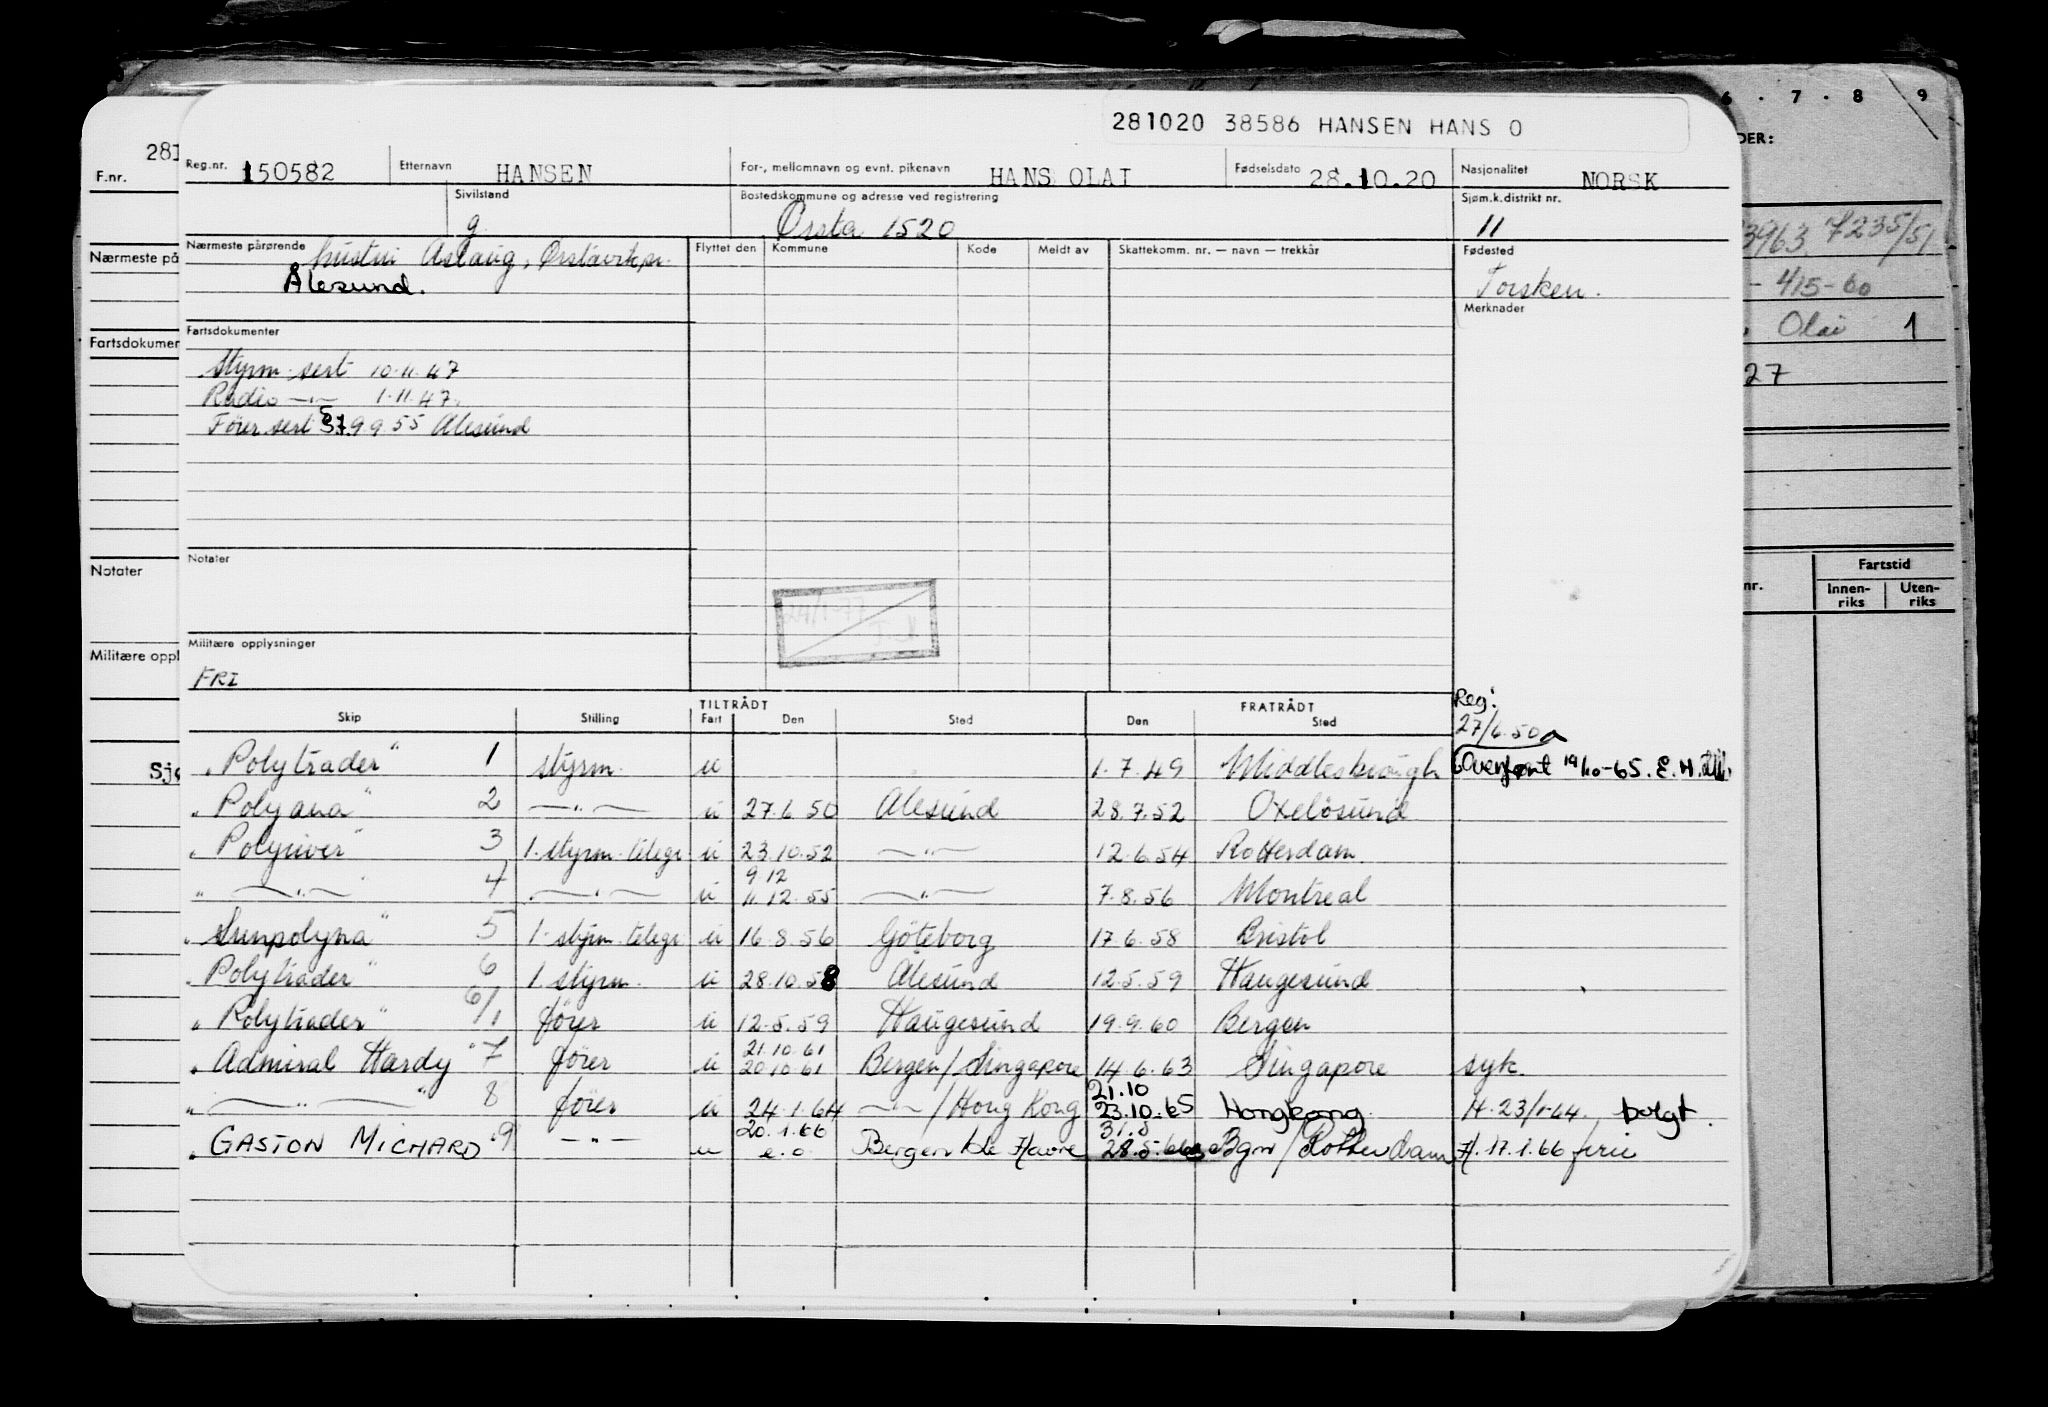 281020 38586 HANSEN HANS O
6 . 7 . 8 . 9
DER:
281
F.nr.
Reg.nr. 150582 Etternavn HANSEN For-, mellomnavn og evnt. pikenavn HANS OLAI Fødselsdato 28.10.20 Nasjonalitet NORSK
Sivilstand g Bostedskommune og adresse ved registrering Ørsta 1520 Sjøm.k.distrikt nr. 11
3963 7235/51
Nærmeste på
Nærmeste pårørende hustru Aslaug, Flyttet den Kommune Kode Meldt av Skattekomm. nr. — navn — trekkår Fødested
Ålesund. Torsken.
- 415-60
Merknader
Olai 1
Fartsdokumen
Fartsdokumenter
27
Styrm. sert 10.11.47
Radio —"— 1.11.47.
Fører sert 9.9.55 Ålesund
Notater
Notater
nr. Fartstid
Innen-riks Uten-riks
24/1-77
Militære oppl
Militære opplysninger
FRI
Reg:
27/6.50
TILTRÅDT FRATRÅDT
Skip Stilling Fart Den Sted Den Sted
Sjø
"Polytrader" 1 styrm. u 1.7.49 Middlesbrough Overført 19/10-65. E.H.
"Polyana" 2 —"— u 27.6.50 Ålesund 28.7.52 Oxelösund
"Polyriver" 3 1. styrm. telegr u 23.10.52 —"— 12.6.54 Rotterdam.
9 12
" —"— " 4 —"— u 11.12.55 —"— 7.8.56 Montreal
"Sunpolyna" 5 1. styrm. telegr u 16.8.56 Göteborg 17.6.58 Bristol
"Polytrader" 6 1. styrm. u 28.10.58 Ålesund 12.5.59 Haugesund
"Polytrader" 6/1 fører u 12.5.59 Haugesund 19.9.60 Bergen
21.10.61
"Admiral Hardy" 7 fører u 20.10.61 Bergen/Singapore 14.6.63 Singapore syk.
21.10
" —"— " 8 fører u 24.1.64 —"—/Hong Kong 23.10.65 Hongkong. H. 23/1-64. bolgt.
20.1.66 31.5
"GASTON MICHARD" 9 —"— u e.o. Bergen/Le Havre 28.5.66 Bgn/Rotterdam H. 17.1.66 ferie